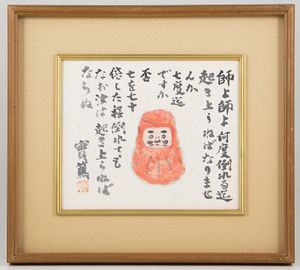 師よ師よ何度倒れる迄
起き上らねばなりませ
んか
七度迄
ですか
否
七を七十
倍した程倒れても
なお汝は起き上らねば
ならぬ
實篤